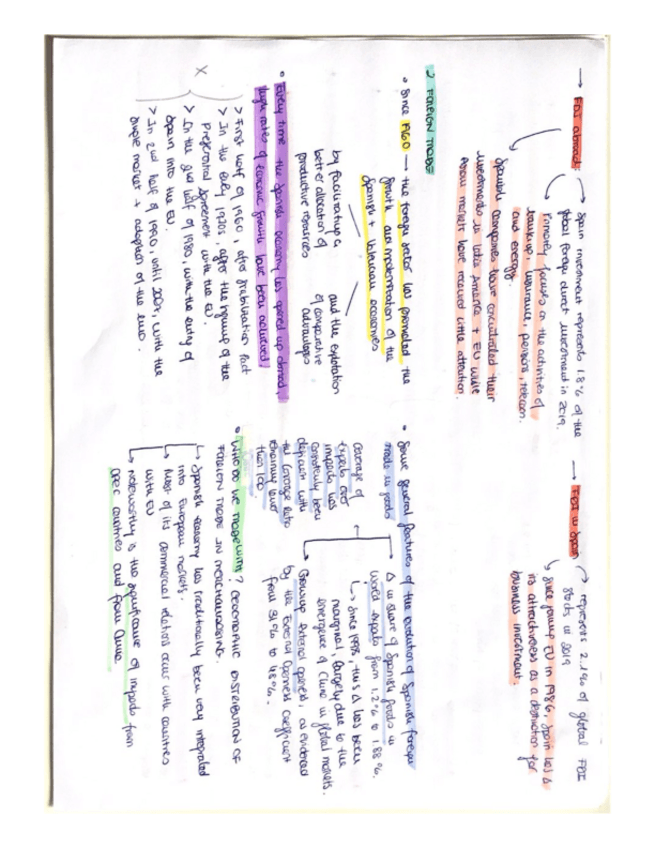 → FDI abroad:
→ Spain investment represents 1.8% of the
global foreign direct investment in 2019.
↳ Primarily focuses on the activities of
banking, insurance, pensions, telecom.
and energy.
Spanish companies have concentrated their
investments in Latin America + EU while
Asian markets have received little attention.
→ FDI in Spain
→ represents 2.1% of global FDI
stocks in 2019
↳ Since joining EU in 1986, Spain has Δ
its attractiveness as a destination for
business investment.
2 FOREIGN TRADE
• Since 1960 → the foreign sector has promoted the
growth and modernization of the
Spanish + Valencian economies
by facilitating a
better allocation of
productive resources
and the exploitation
of comparative
advantages
• Every time the Spanish economy has opened up abroad,
high rates of economic growth have been achieved:
> First half of 1960, after Stabilization Pact
> In the early 1970s, after the signing of the
Preferential Agreement with the EU.
> In the 2nd half of 1980, with the entry of
Spain into the EU.
> In 2nd half of 1990, until 2007, with the
single market + adoption of the euro.
x
• Some general features of the evolution of Spanish foreign
trade in goods
Δ in share of Spanish goods in
world exports from 1.2% to 1.88%.
↳ Since 1998, this Δ has been
marginal, largely due to the
emergence of China in global markets.
Growing external openness, as evidenced
by the External Openness Coefficient
from 31% to 48%.
coverage of
exports over
imports has
consistently been
deficient with
the coverage ratio
remaining lower
than 100
• WHO DO WE TRADE WITH? GEOGRAPHIC DISTRIBUTION OF
FOREIGN TRADE IN MERCHANDISING.
↳ Spanish economy has traditionally been very integrated
into European markets.
↳ Most of its commercial relations occur with countries
with EU
↳ Noteworthy is the significance of imports from
OPEC countries and from China.